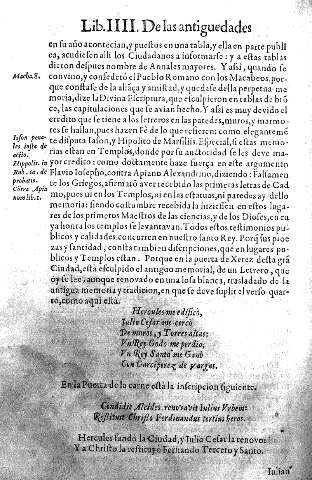 Lib. IIII. De las antiguedades
en su año acontecian, y puestos en una tabla, y ella en parte publi
ca, acudiesen alli los Ciudadanos a informarse: y a estas tablas
dieron despues nombre de Annales mayores. Y assi, quando se
convino, y confederó el Pueblo Romano con los Macabeos, por
Macha. 8.
que constase de la aliāça y amistad, y que dase della perpetua me
moria, dize la Divina Escriptura, que esculpieron en tablas de brō
ce, las capitulaciones que se avian hecho. Y assi es muy devido el
credito que se tiene a los letreros en las paredes, muros, y marmo
res se hallan, pues hazen Fè de lo que refieren: como elegantemē
te disputa Iason, y Hipolito de Marsilis. Especial, si estas memo
rias estan en Templos, donde por su autoridad se les deve ma-
yor credito: como doctamente haze fuerça en este argumento
Flavio Iosepho, contra Apiano Alexandrino, diziendo: Falsamen
te los Griegos, afirmarō aver recebido las primeras letras de Cad
mo, pues ni en los Templos, ni en las estatuas, ni paredes ay dello
memoria: siendo costumbre recebida la
gares de los primeros Maestros de las ciencias, y de los Dioses, en cu
ya honra los templos se levantavan. Todos estos testimonios pu
blicos y calidades concurren en nuestro santo Rey. Porq̄ sus proe
zas y santidad, constā tambien discripciones, que en lugares pu-
blicos y Templos estan. Porque en la puerta de Xerez desta grā
Ciudad, está esculpido el antiguo memorial, de un Letrero, que
oy se lee, aunque renovado en una losa blanca, trasladado de la
antigua memoria y tradicion, en que se deve suplir el verso quar-
to, como aqui està.
Hercules me edificò,
Iulio Cesar me cercò
De muros, y Torres altas:
Vn Rey Godo me perdio;
Vn Rey Santo me Ganò
Con Garciperez de Vargas.
En la Puerta de la carne està la inscripcion siguiente.
Condidit Alcides, renovavit Iulius Vrbem:
Restituit Christo Ferdinandus tertius heros.
Hercules fundò la Ciudad, y Iulio Cesar la renovò:
Y a Christo la restituyò Fernando Tercero y Santo.
Iulian